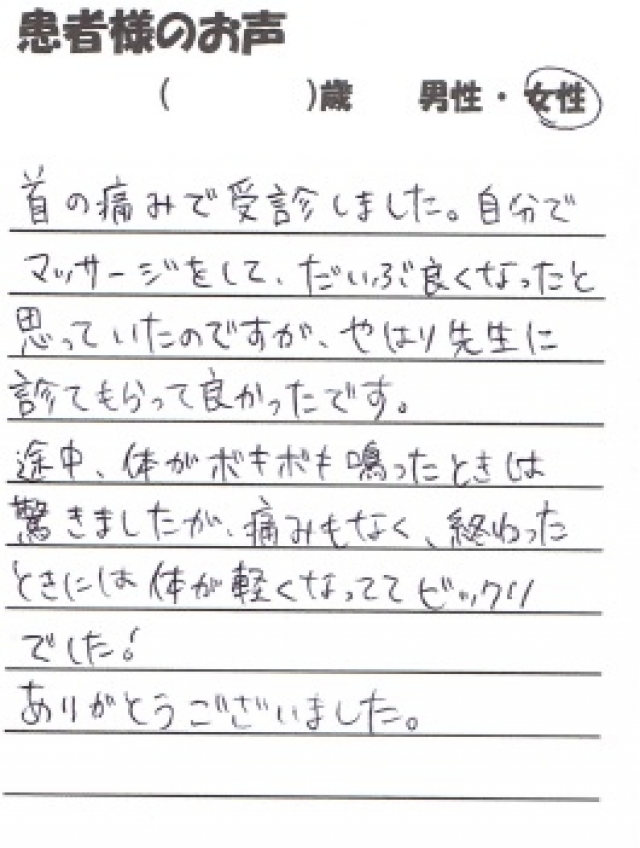 患者様のお声
(　　　)歳　男性・女性
首の痛みで受診しました。自分で
マッサージをして、だいぶ良くなったと
思っていたのですが、やはり先生に
診てもらって良かったです。
途中、体がボキボキ鳴ったときは
驚きましたが、痛みもなく、終わった
ときには体が軽くなっててビックリ
でした!
ありがとうございました。